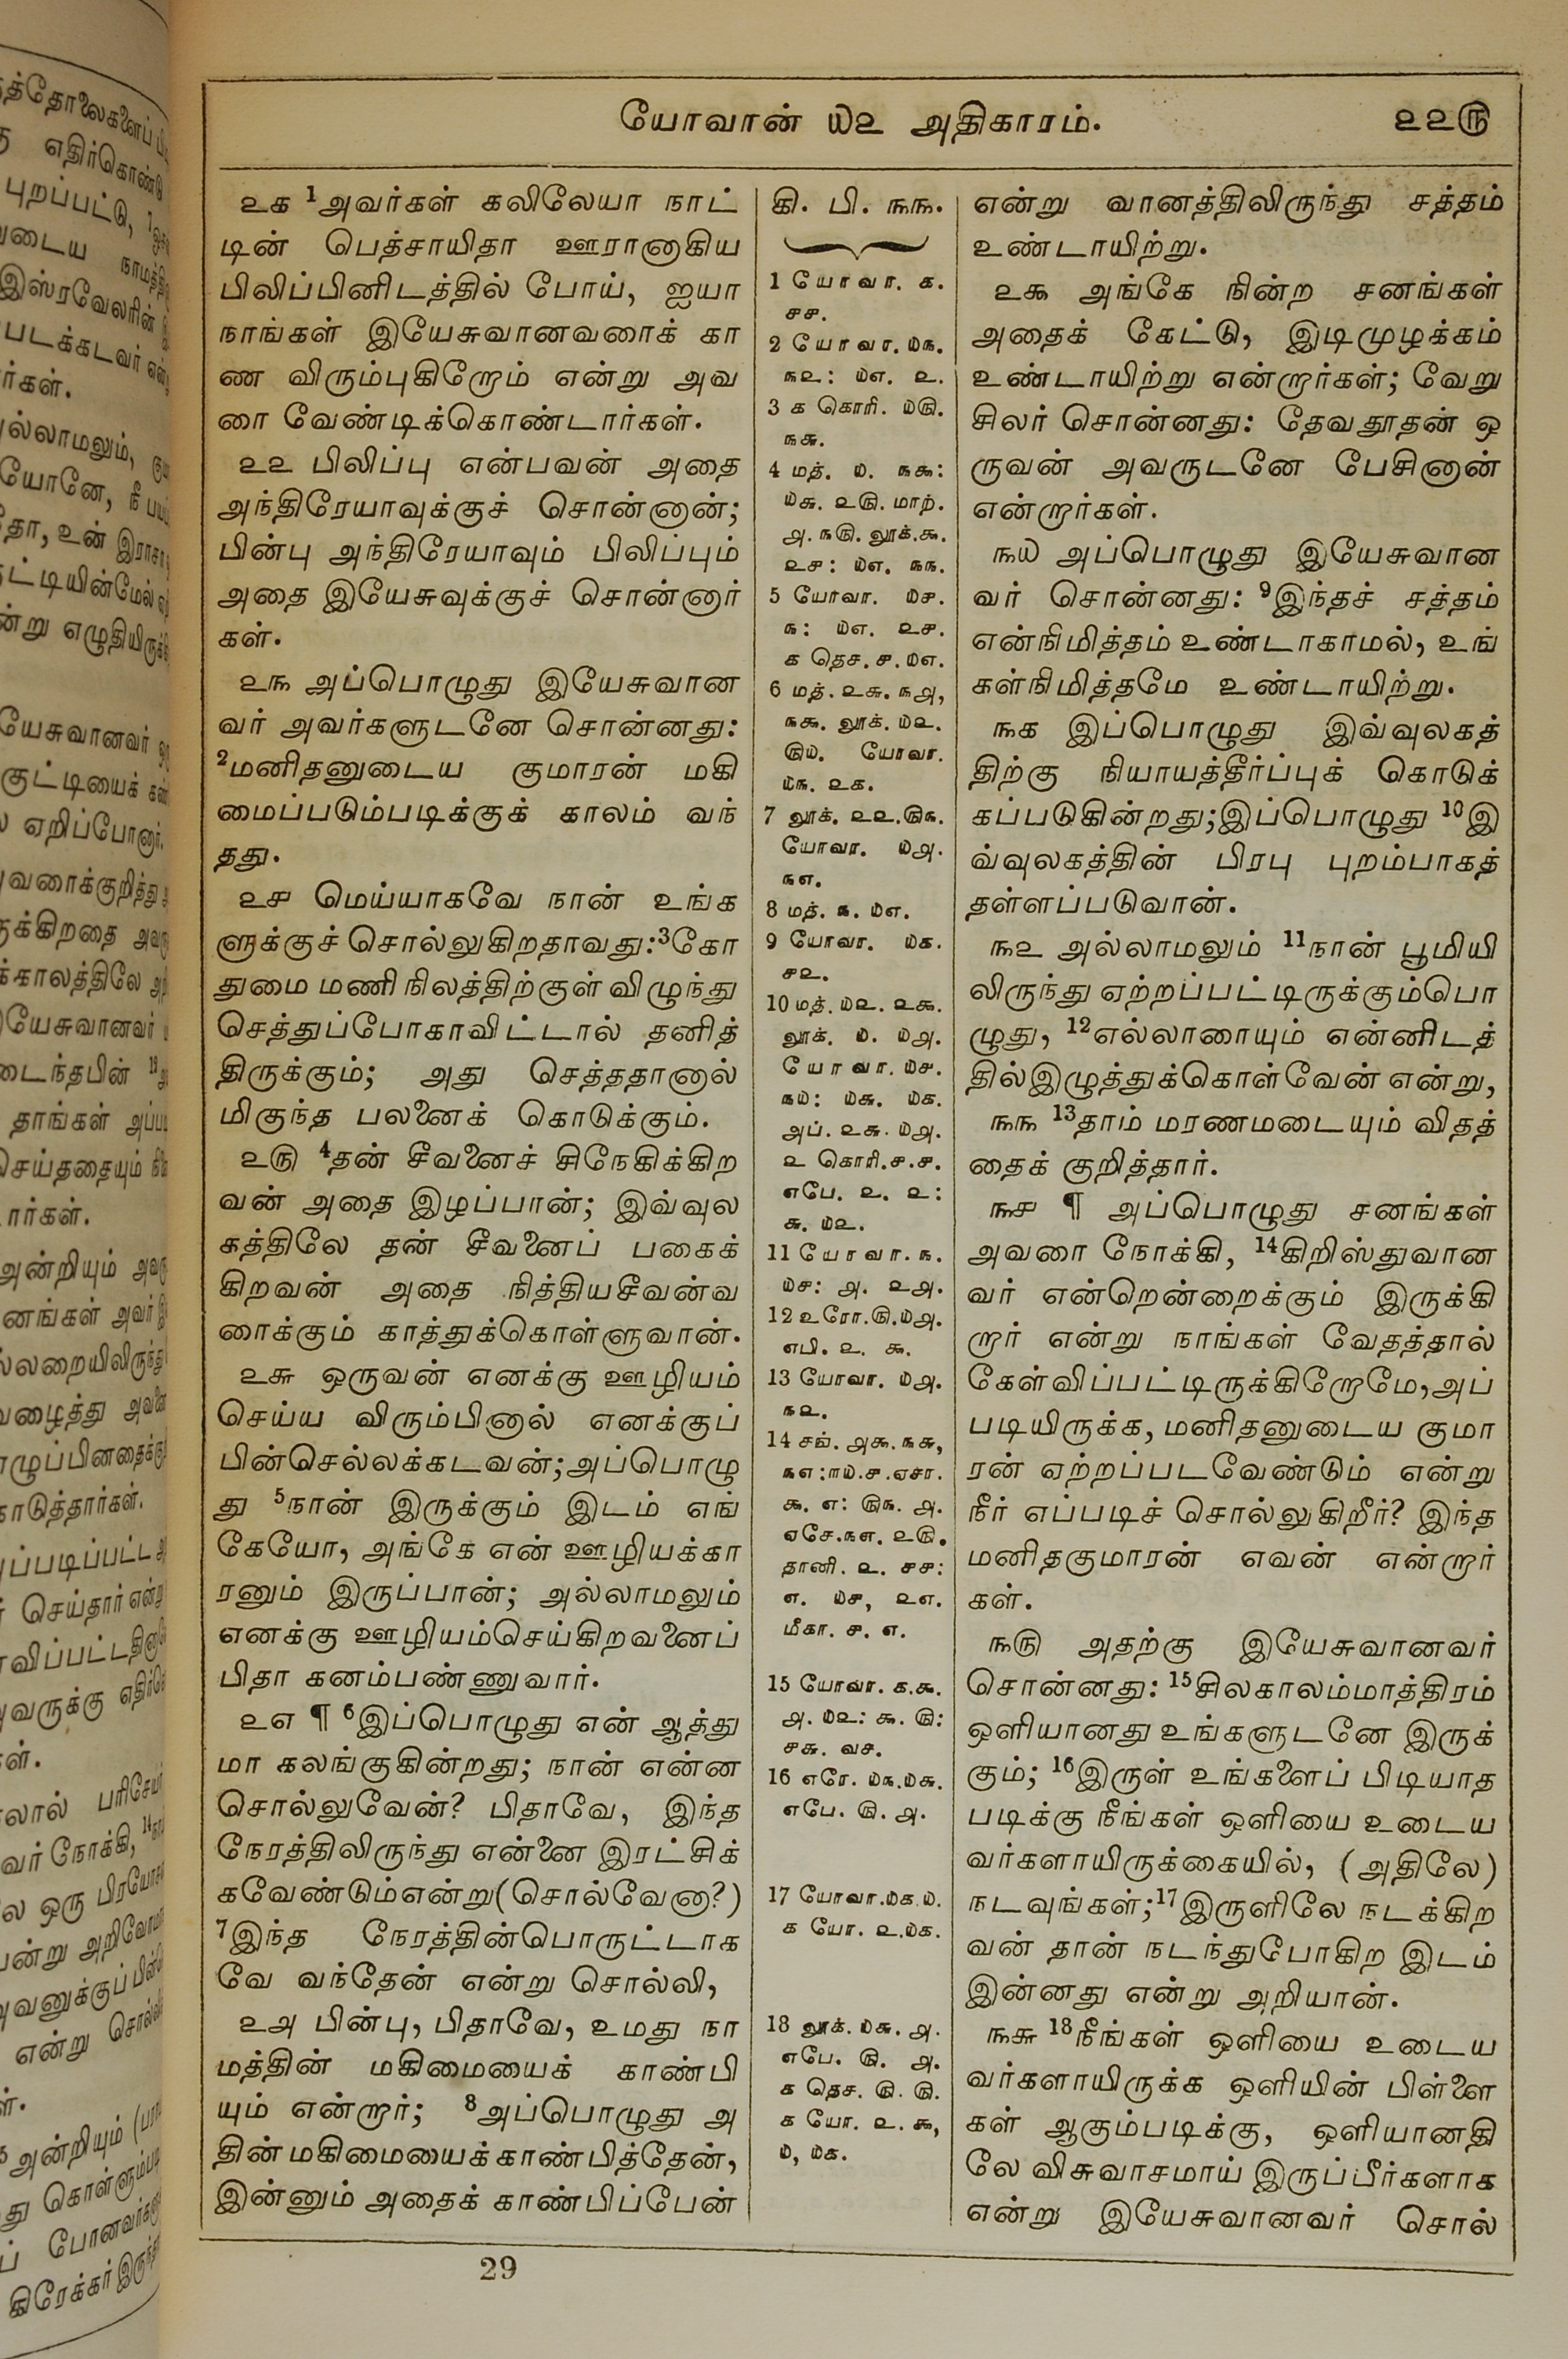 யோவான் ௰௨ அதிகாரம்.
௨௨௫
௨௧ 1அவர்கள் கலிலேயா நாட்
டின் பெத்சாயிதா ஊரானாகிய
பிலிப்பினிடத்தில் போய், ஐயா
நாங்கள் இயேசுவானவரைக் கா
ண விரும்புகிறோம் என்று அவ
ரை வேண்டிக்கொண்டார்கள்.
௨௨ பிலிப்பு என்பவன் அதை
அந்திரேயாவுக்குச் சொன்னான்;
பின்பு அந்திரேயாவும் பிலிப்பும்
அதை இயேசுவுக்குச் சொன்னார்
கள்.
௨௩ அப்பொழுது இயேசுவான
வர் அவர்களுடனே சொன்னது:
2மனிதனுடைய குமாரன் மகி
மைப்படும்படிக்குக் காலம் வந்
தது.
௨௪ மெய்யாகவே நான் உங்க
ளுக்குச் சொல்லுகிறதாவது:3கோ
துமை மணி நிலத்திற்குள் விழுந்து
செத்துப்போகாவிட்டால் தனித்
திருக்கும்; அது செத்ததானால்
மிகுந்த பலனைக் கொடுக்கும்.
௨௫ 4தன் சீவனைச் சிநேகிக்கிற
வன் அதை இழப்பான்; இவ்வுல
கத்திலே தன் சீவனைப் பகைக்
கிறவன் அதை நித்தியசீவன்வ
ரைக்கும் காத்துக்கொள்ளுவான்.
௨௬ ஒருவன் எனக்கு ஊழியம்
செய்ய விரும்பினால் எனக்குப்
பின்செல்லக்கடவன்;அப்பொழு
து 5நான் இருக்கும் இடம் எங்
கேயோ, அங்கே என் ஊழியக்கா
ரனும் இருப்பான்; அல்லாமலும்
எனக்கு ஊழியம்செய்கிறவனைப்
பிதா கனம்பண்ணுவார்.
௨௭ ¶ 6இப்பொழுது என் ஆத்து
மா கலங்குகின்றது; நான் என்ன
சொல்லுவேன்? பிதாவே, இந்த
நேரத்திலிருந்து என்னை இரட்சிக்
கவேண்டும்என்று(சொல்வேனா?)
7இந்த நேரத்தின்பொருட்டாக
வே வந்தேன் என்று சொல்லி,
௨௮ பின்பு, பிதாவே, உமது நா
மத்தின் மகிமையைக் காண்பி
யும் என்றார்; 8அப்பொழுது அ
தின் மகிமையைக்காண்பித்தேன்,
இன்னும் அதைக் காண்பிப்பேன்
29
கி. பி. ௩௩.
1 யோவா. ௧.
௪௪.
2 யோவா. ௰௩.
௩௨: ௰௭. ௨.
3 ௧ கொரி. ௰௫.
௩௬.
4 மத். ௰. ௩௯:
௰௬. ௨௫. மாற்.
௮. ௩௫. லூக்.௯.
௨௪: ௰௭. ௩௩.
5 யோவா. ௰௪.
௩: ௰௭. ௨௪.
௧ தெச. ௪. ௰௭.
6 மத். ௨௬. ௩௮,
௩௯. லூக். ௰௨.
௫௰. யோவா.
௰௩. ௨௧.
7 லூக். ௨௨.௫௩.
யோவா. ௰௮.
௩௭.
8 மத். ௩. ௰௭.
9 யோவா. ௰௧.
௪௨.
10 மத். ௰௨. ௨௯.
லூக். ௰. ௰௮.
யோவா. ௰௪.
௩௰: ௰௬. ௰௧.
அப். ௨௬. ௰௮.
௨ கொரி.௪.௪.
எபே. ௨. ௨:
௬. ௰௨.
11 யோவா. ௩.
௰௪: ௮. ௨௮.
12 உரோ.௫.௰௮.
எபி. ௨. ௯.
13 யோவா. ௰௮.
௩௨.
14 சங். ௮௯. ௩௬,
௩௭:௱௰.௪.ஏசா.
௯. ௭: ௫௩. ௮.
ஏசே.௩௭. ௨௫.
தானி. ௨. ௪௪:
௭. ௰௪, ௨௭.
மீகா. ௪. ௭.
15 யோவா. ௧.௯.
௮. ௰௨: ௯. ௫:
௪௬. வச.
16 எரே. ௰௩.௰௬.
எபே. ௫. ௮.
17 யோவா.௰௧.௰.
௧ யோ. ௨.௰௧.
18 லூக். ௰௬. ௮.
எபே. ௫. ௮.
௧ தெச. ௫. ௫.
௧ யோ. ௨. ௯,
௰, ௰௧.
என்று வானத்திலிருந்து சத்தம்
உண்டாயிற்று.
௨௯ அங்கே நின்ற சனங்கள்
அதைக் கேட்டு, இடிமுழக்கம்
உண்டாயிற்று என்றார்கள்; வேறு
சிலர் சொன்னது: தேவதூதன் ஒ
ருவன் அவருடனே பேசினான்
என்றார்கள்.
௩௰ அப்பொழுது இயேசுவான
வர் சொன்னது: 9இந்தச் சத்தம்
என்நிமித்தம் உண்டாகாமல், உங்
கள்நிமித்தமே உண்டாயிற்று.
௩௧ இப்பொழுது இவ்வுலகத்
திற்கு நியாயத்தீர்ப்புக் கொடுக்
கப்படுகின்றது;இப்பொழுது 10இ
வ்வுலகத்தின் பிரபு புறம்பாகத்
தள்ளப்படுவான்.
௩௨ அல்லாமலும் 11நான் பூமியி
லிருந்து ஏற்றப்பட்டிருக்கும்பொ
ழுது, 12எல்லாரையும் என்னிடத்
தில்இழுத்துக்கொள்வேன் என்று,
௩௩ 13தாம் மரணமடையும் விதத்
தைக் குறித்தார்.
௩௪ ¶ அப்பொழுது சனங்கள்
அவரை நோக்கி, 14கிறிஸ்துவான
வர் என்றென்றைக்கும் இருக்கி
றார் என்று நாங்கள் வேதத்தால்
கேள்விப்பட்டிருக்கிறோமே,அப்
படியிருக்க, மனிதனுடைய குமா
ரன் ஏற்றப்படவேண்டும் என்று
நீர் எப்படிச் சொல்லுகிறீர்? இந்த
மனிதகுமாரன் எவன் என்றார்
கள்.
௩௫ அதற்கு இயேசுவானவர்
சொன்னது: 15சிலகாலம்மாத்திரம்
ஒளியானது உங்களுடனே இருக்
கும்; 16இருள் உங்களைப் பிடியாத
படிக்கு நீங்கள் ஒளியை உடைய
வர்களாயிருக்கையில், (அதிலே)
நடவுங்கள்;17இருளிலே நடக்கிற
வன் தான் நடந்துபோகிற இடம்
இன்னது என்று அறியான்.
௩௬ 18நீங்கள் ஒளியை உடைய
வர்களாயிருக்க ஒளியின் பிள்ளை
கள் ஆகும்படிக்கு, ஒளியானதி
லே விசுவாசமாய் இருப்பீர்களாக
என்று இயேசுவானவர் சொல்